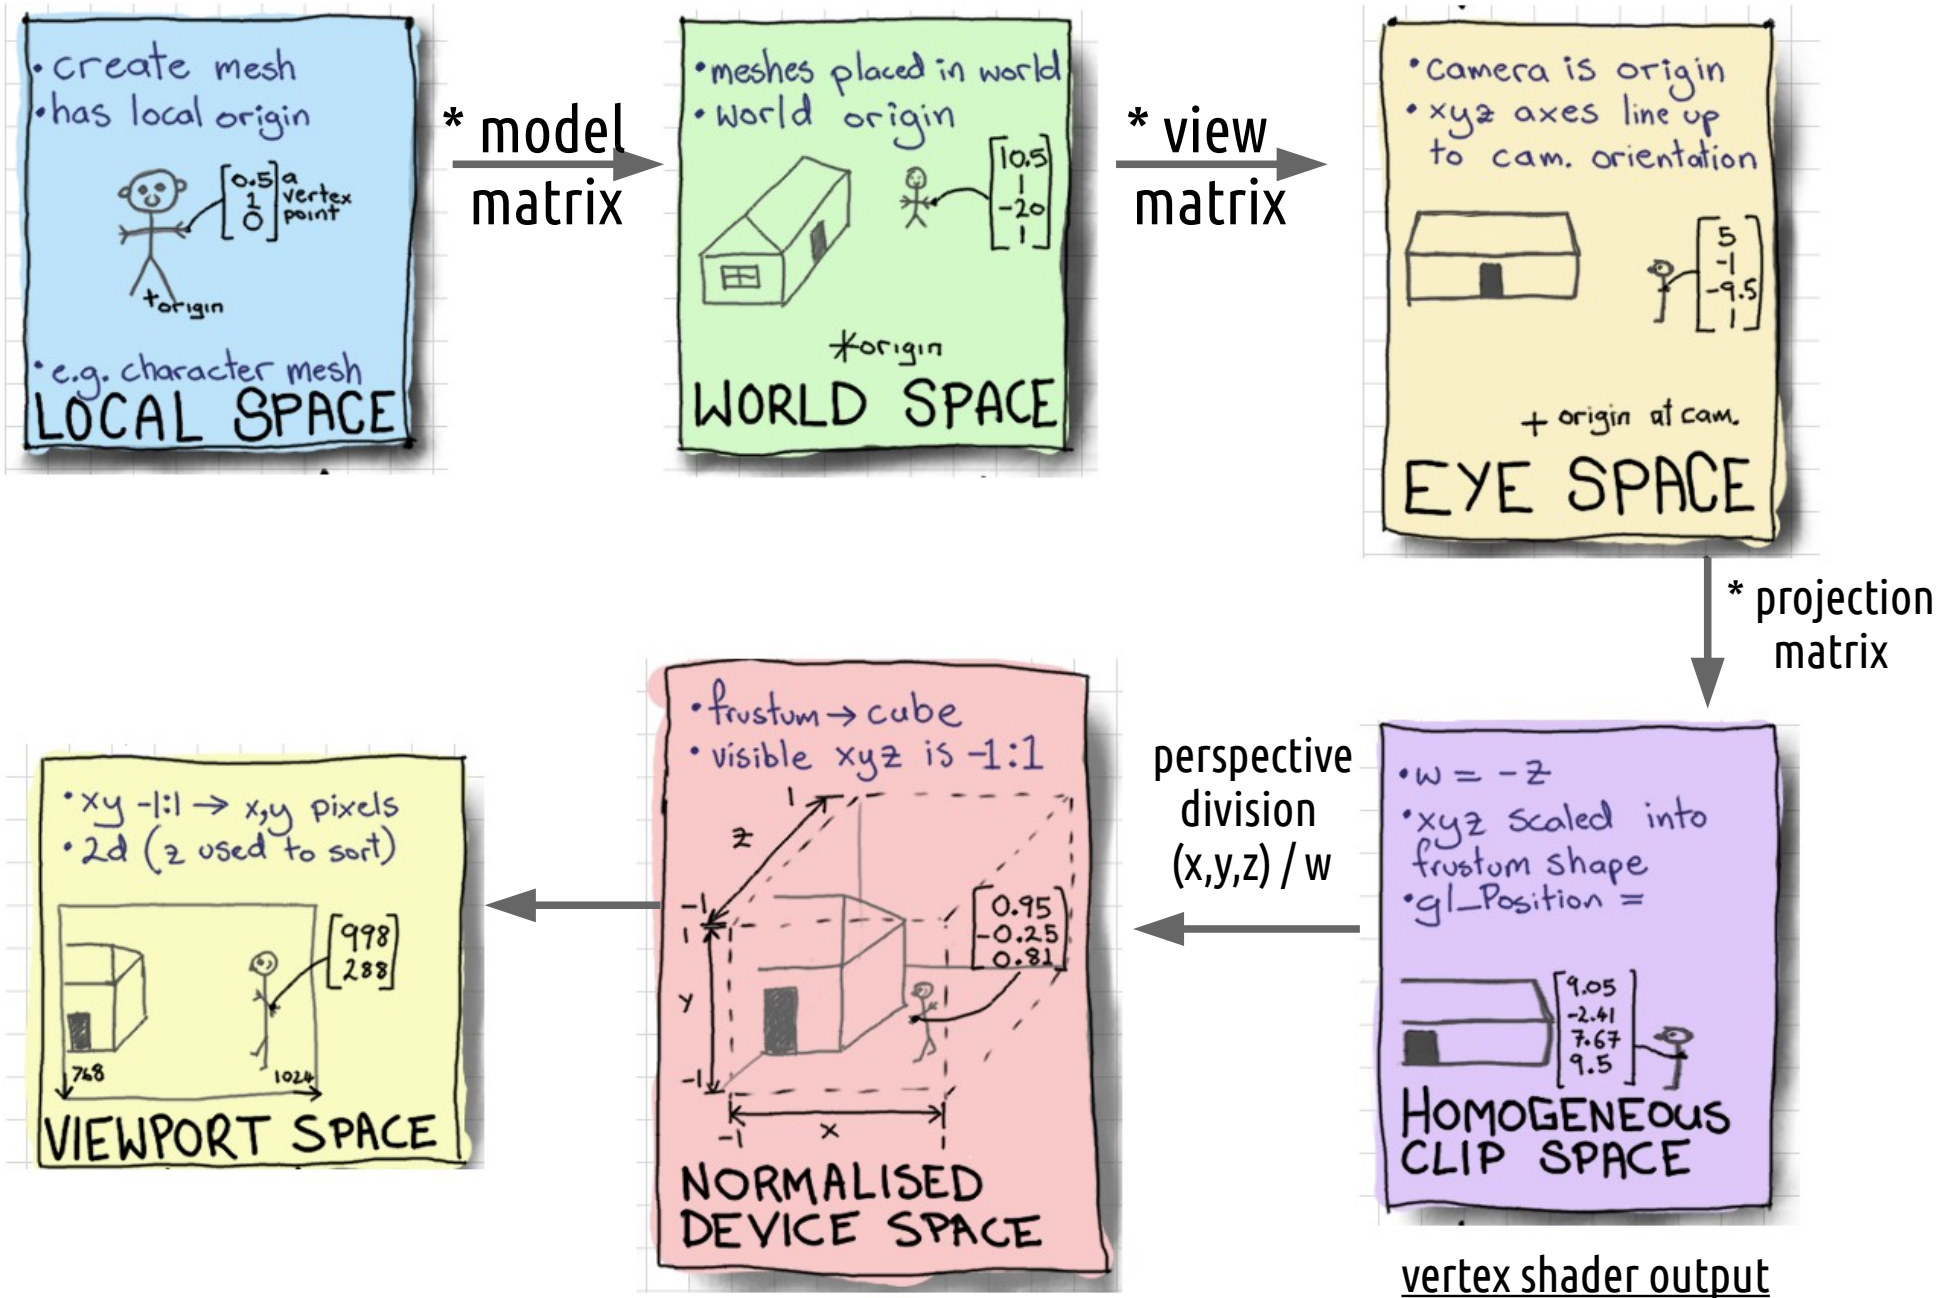 • create mesh
• has local origin
[0.5
1
0]
a
vertex
point
+origin
• e.g. character mesh
LOCAL SPACE
* model
matrix
• meshes placed in world
• world origin
[10.5
1
-20
1]
*origin
WORLD SPACE
* view
matrix
• camera is origin
• xyz axes line up
to cam. orientation
[5
-1
-9.5
1]
+ origin at cam.
EYE SPACE
* projection
matrix
• w = -z
• xyz scaled into
frustum shape
• gl_Position =
[9.05
-2.41
7.67
9.5]
HOMOGENEOUS
CLIP SPACE
vertex shader output
perspective
division
(x,y,z) / w
• frustum → cube
• visible xyz is -1:1
1
z
-1
1
y
-1
-1
x
1
[0.95
-0.25
0.81]
NORMALISED
DEVICE SPACE
• xy -1:1 → x,y pixels
• 2d (z used to sort)
[998
288]
768
1024
VIEWPORT SPACE